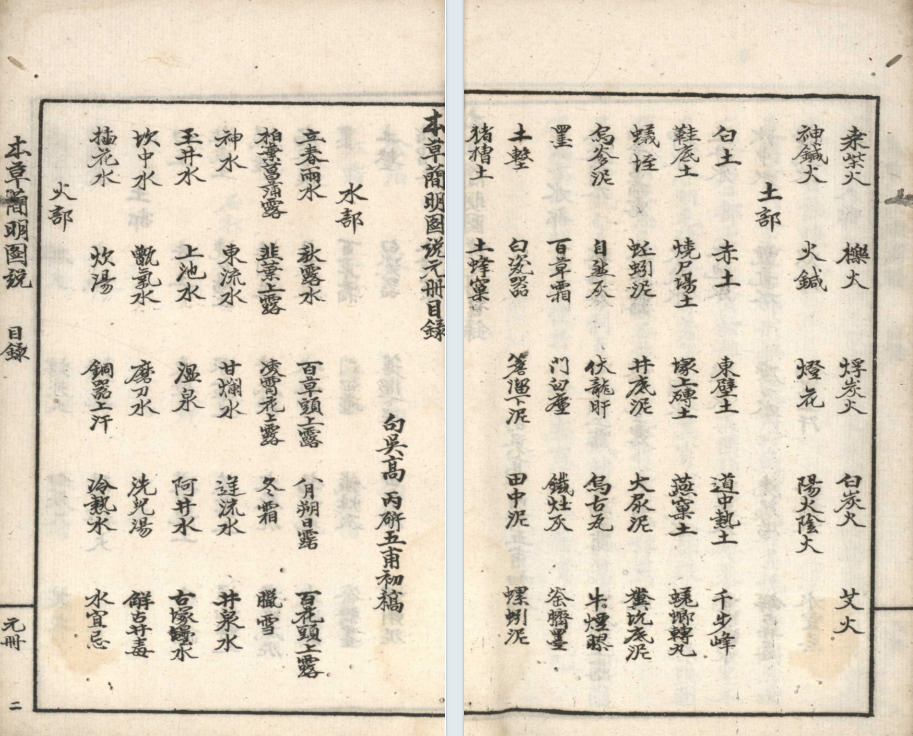 本草簡明图説元冊目録
句吳高 丙 硏五甫初稿
水部
立春雨水 秋露水 百草頭上露 八月朔日露 百花頭上露
柏葉菖蒲露 韭葉上露 凌霄花上露 冬霜 臘雪
神水 東流水 甘爛水 逆流水 井泉水
玉井水 上池水 温泉 阿井水 古塚水
坎中水 甑氣水 磨刀水 洗兒湯 解古井毒
橘花水 炊湯 銅器上汗 冷熱水 水宜忌
火部
本草簡明図説 目録 元冊 二
桑柴火 櫟火 桴炭火 白炭火 艾火
神鍼火 火鍼 燈花 陽火陰火
土部
白土 赤土 東壁土 道中熱土 千步峰
鞋底土 燒尸場土 塚上磚土 燕窠土 蜣螂轉丸
蟻垤 蚯蚓泥 井底泥 犬尿泥 糞坑底泥
烏爹泥 自然灰 伏龍肝 烏古瓦 牛煙膠
墨 百草霜 門臼塵 鐵灶灰 釜臍墨
土墼 白瓷器 簷溜下泥 田中泥 螺螄泥
猪槽土 土蜂窠